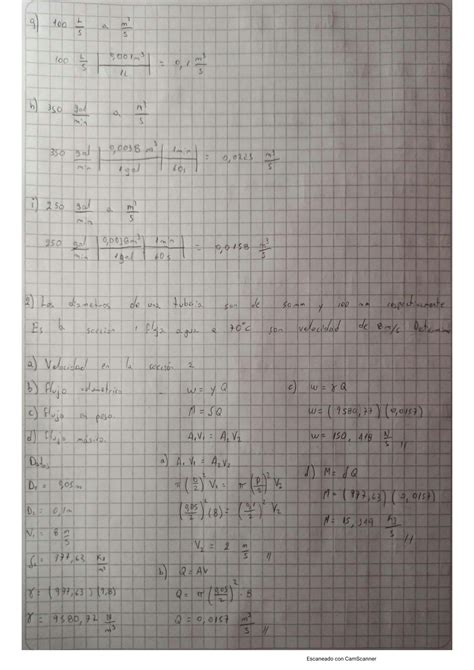 g) 100 L/s a m³/s
100 L/s | 0,001m³ / 1L | = 0,1 m³/s
h) 350 gal/min a m³/s
350 gal/min | 0,0038 m³ / 1gal | 1min / 60s | = 0,0223 m³/s
i) 250 gal/min a m³/s
250 gal/min | 0,0038m³ / 1gal | 1min / 60s | = 0,0158 m³/s
2) Los diametros de una tuberia son de 50mm y 100 mm respectivamente
En la sección 1 fluye agua a 70°c con velocidad de 8 m/s Determine
a) Velocidad en la sección 2
b) Flujo volumetrico
c) Flujo en peso
d) Flujo másico
w = γ Q
M = ρQ
A₁V₁ = A₂V₂
c) w = γ Q
w = (9580,77)(0,0157)
w = 150,418 N/s //
Datos
D₁ = 0,05m
D₂ = 0,1m
V₁ = 8 m/s
= 977,63 Kg/m³
γ = (977,63)(9,8)
γ = 9580,77 N/m³
a) A₁V₁ = A₂V₂
π (D/2)² V₁ = π (D/2)² V₂
(0,05/2)² (8) = (0,1/2)² V₂
V₂ = 2 m/s //
b) Q = AV
Q = π (0,05/2)² · 8
Q = 0,0157 m³/s //
d) M = ρQ
M = (977,63)(0,0157)
M = 15,349 Kg/s //
Escaneado con CamScanner